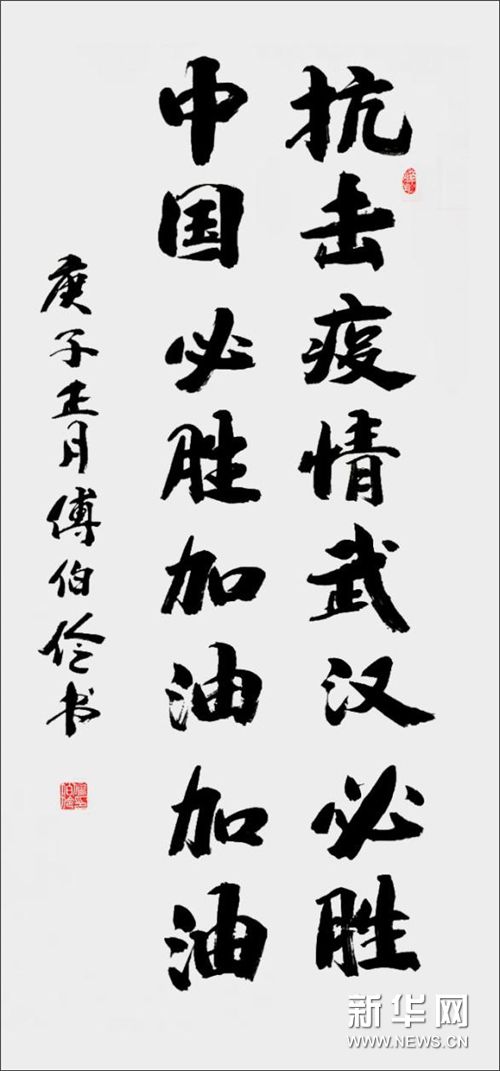 抗击疫情武汉必胜
中国必胜加油加油
庚子正月傅伯伦书
新华网
WWW.NEWS.CN